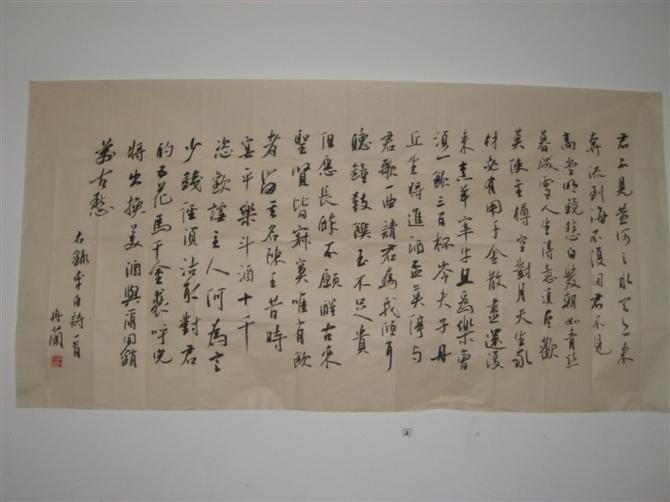 君不見黄河之水天上来
奔流到海不復回君不見
高堂明鏡悲白髮朝如青丝
暮成雪人生得意須尽歡
莫使金樽空對月天生我
材必有用千金散盡還復
来烹羊宰牛且為樂會
須一飲三百杯岑夫子丹
丘生将進酒盃莫停与
君歌一曲請君為我傾耳
聽鐘鼓饌玉不足貴
但愿長醉不願醒古来
聖賢皆寂寞唯有飲
者留其名陳王昔時
宴平樂斗酒十千
恣歡謔主人何為言
少錢徑須沽取對君
酌五花馬千金裘呼児
将出換美酒與爾同銷
萬古愁
右錄李白詩一首
蘭